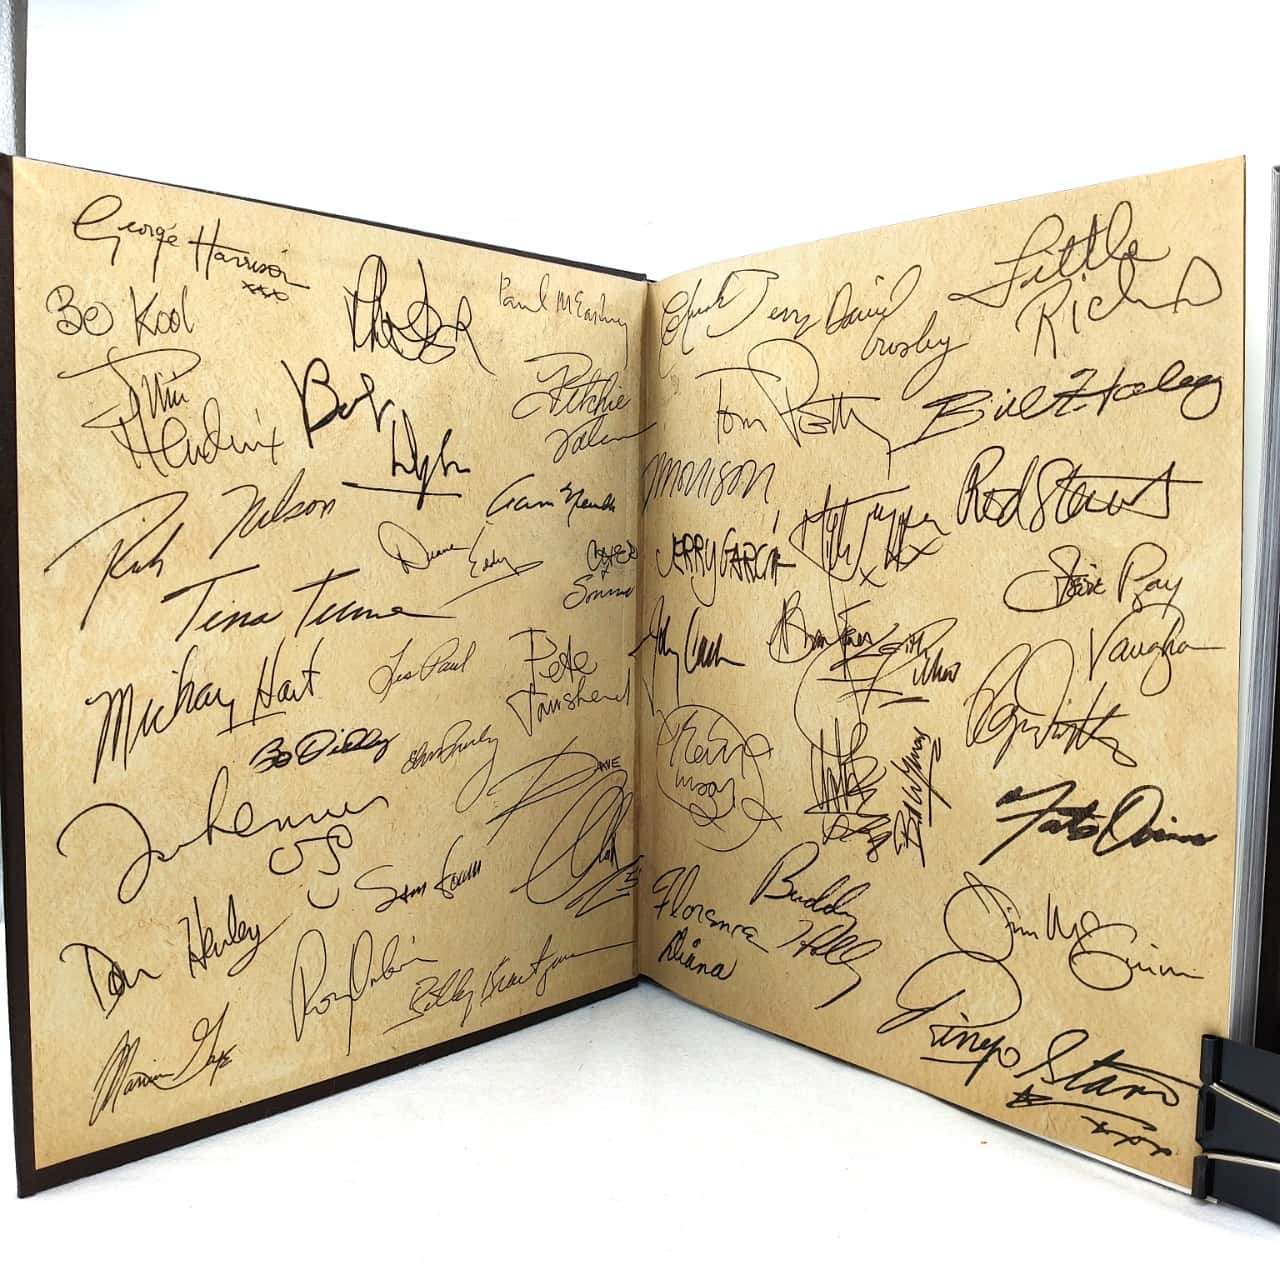 George Harrison
xxx
Bo Kool
Paul McCartney
Jimi
Hendrix
Bob
Dylan
Ritchie
Valens
Rick Nelson
Duane
Eddy
Cher
Sonny
Tina Turner
Mickay Hart
Les Paul
Pete
Townshend
Bo Diddly
Dave
Clark
John Lennon
Sam
Don Henley
Roy Orbison
Billy Kreutzmann
Marvin Gaye
Chuck Berry
David
Crosby
Little
Richard
Tom Petty
Bill Haley
Morrison
Rod Stewart
JERRY GARCIA
Mick Jagger
Stevie Ray
Vaughan
John Cash
Keith
Richards
Keith
Moon
Bill Wyman
Fats Domino
Florence
Diana
Buddy
Holly
Jim Mc
Guinn
Ringo Starr